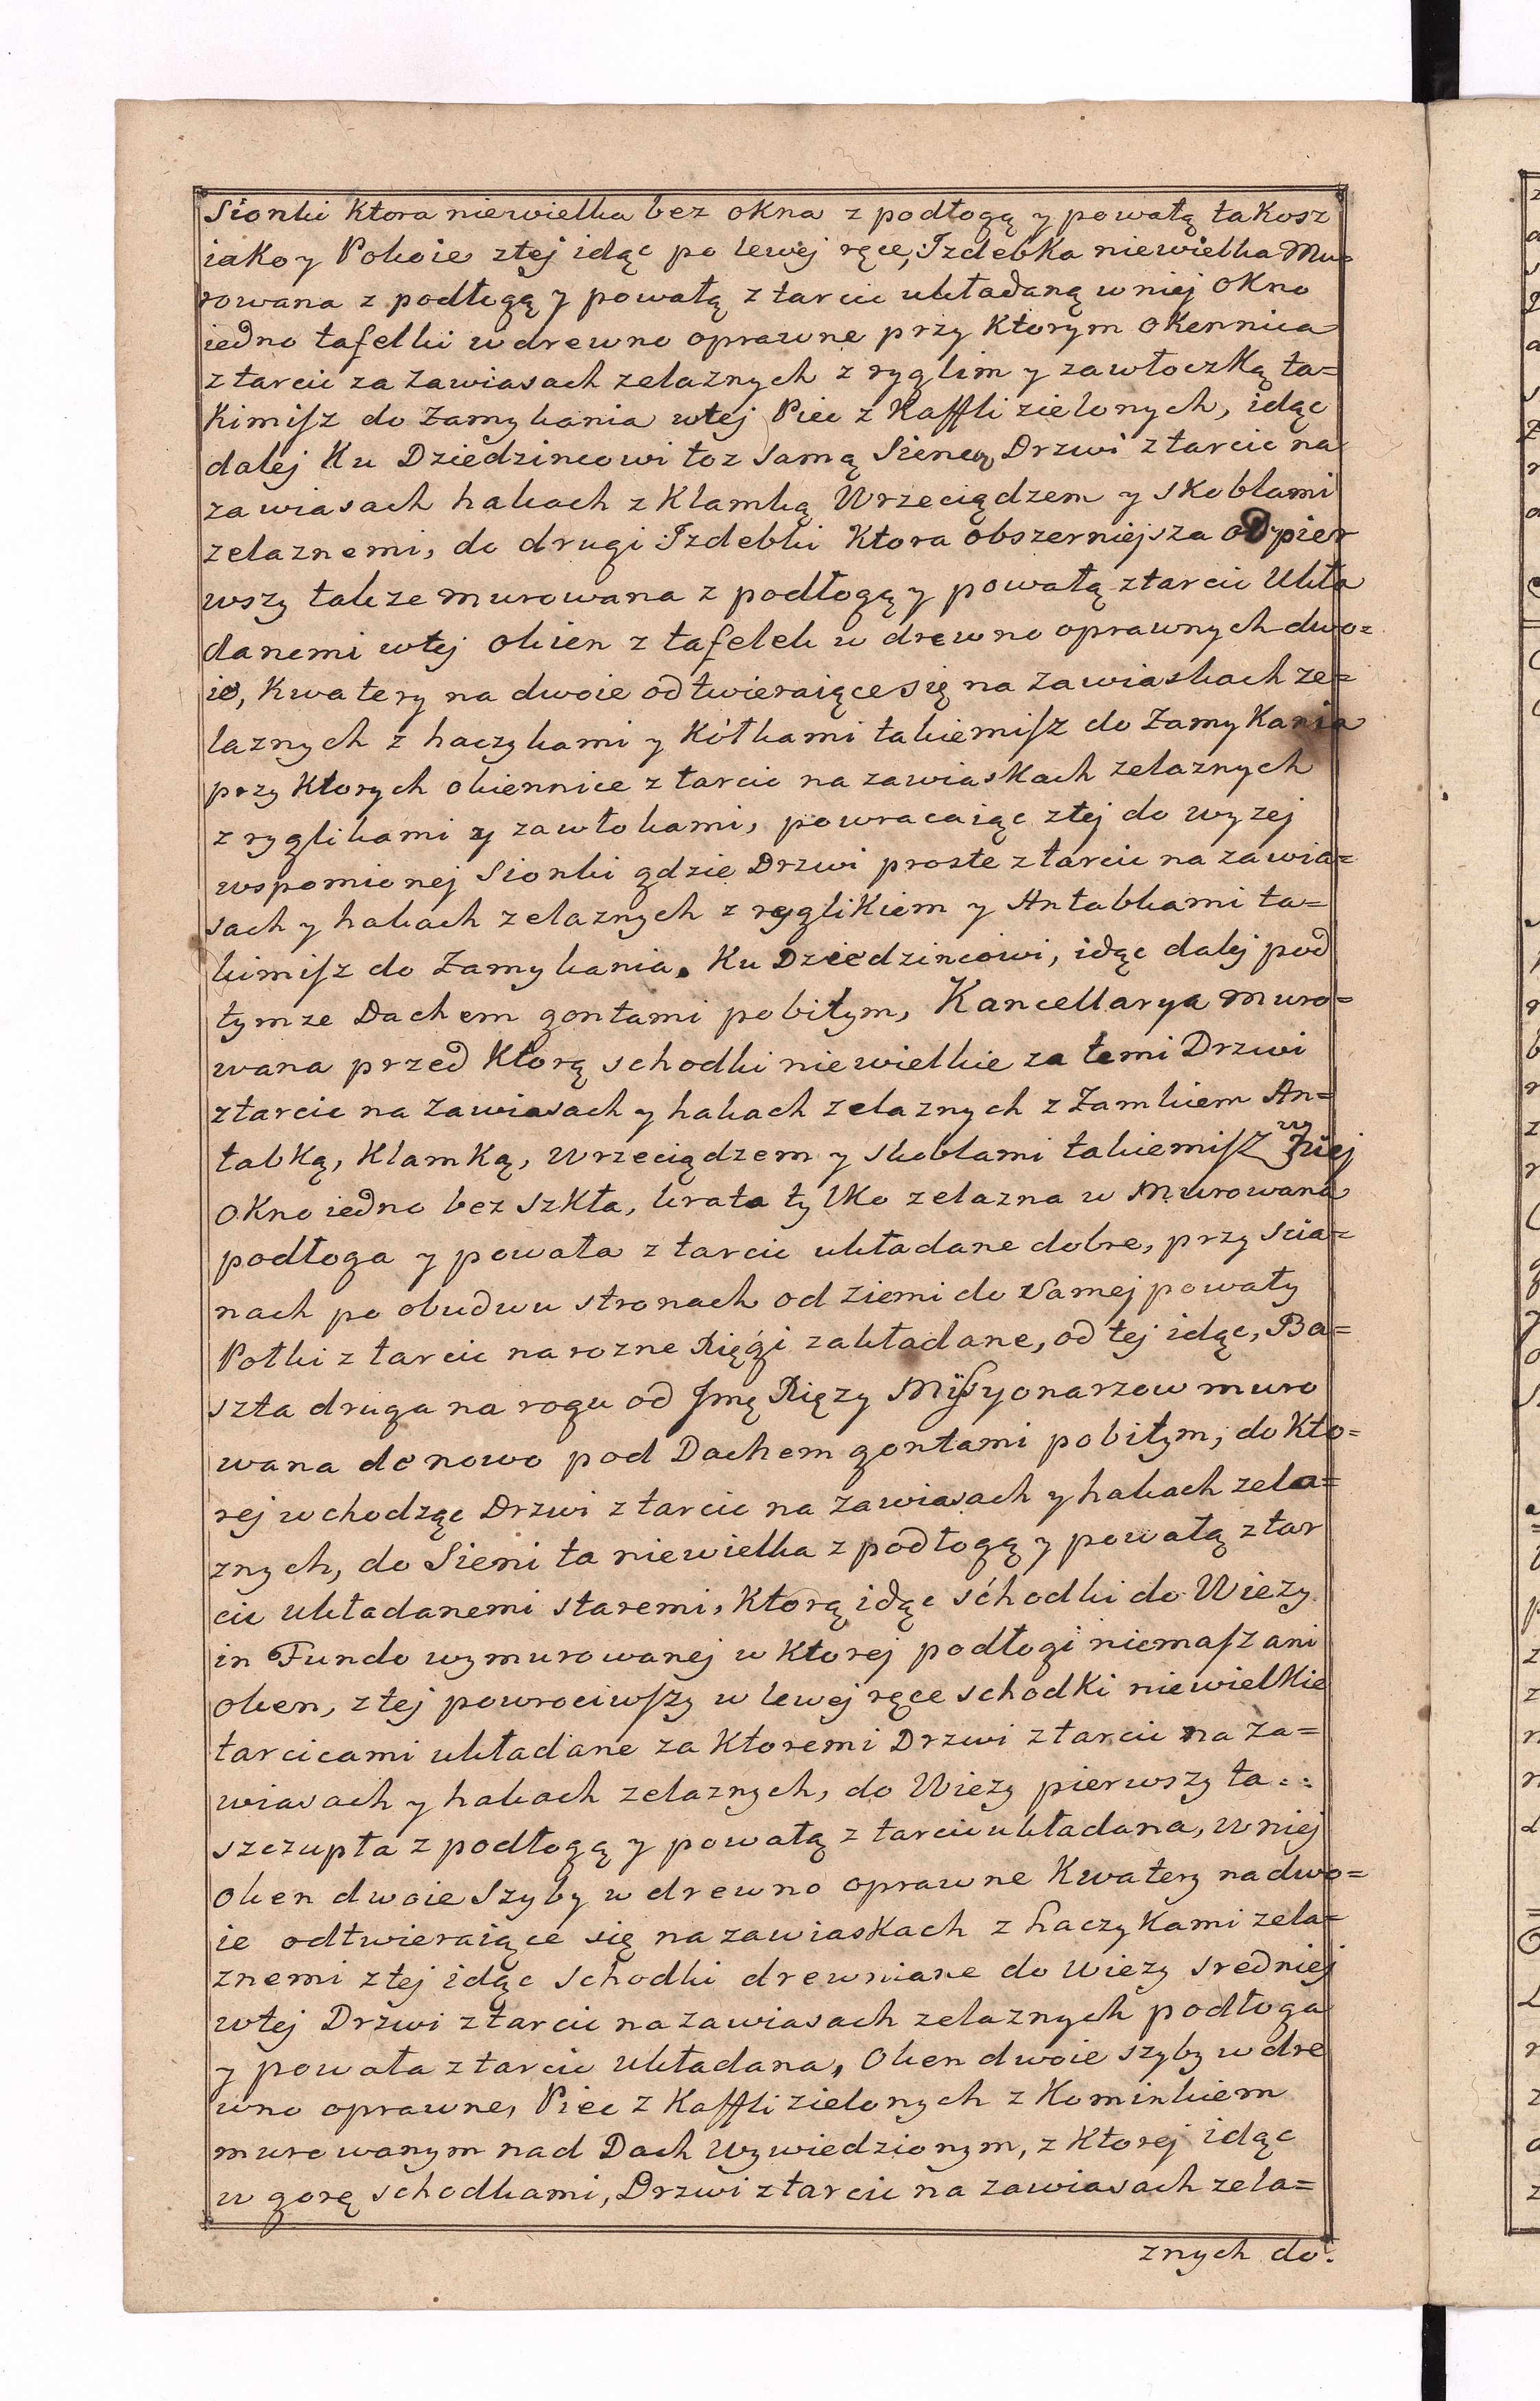 Sionki Ktora niewielka bez okna z podłogą y powałą takosz
iako y Pokoie ztej idąc po lewej ręce, Izdebka niewielka Mu=
rowana z podłogą y powałą ztarcic układaną w niej Okno
iedno tafelki wdrewno oprawne przy Ktorym Okennica
ztarcic za Zawiasach zelaznych z ryglim y zawłoczką ta=
Kimisz do Zamykania wtej Piec z Kaffli zielonych, idąc
dalej Ku Dziedzincowi toz Samą Siencą Drzwi ztarcic na
zawiasach hakach z Klamką Wrzeciądzem y skoblami
zelaznemi, do drugi Izdebki Ktora obszerniejsza od pier
wszy takze murowana z podłogą y powałą ztarcic Ukła
danemi wtej okien z tafelek w drewno oprawnych dwo=
ie, Kwatery na dwoie odtwieraiące się na Zawiaskach ze=
laznych z haczykami y Kółkami takiemisz do Zamykania
przy Ktorych okiennice ztarcic na zawiaskach zelaznych
z ryglikami y zawłokami, powracaiąc ztej do wyzej
wspomionej Sionki gdzie Drzwi proste ztarcic na zawia=
sach y hakach zelaznych z ryglikiem y Antabkami ta=
kimisz do Zamykania. Ku Dziedzincowi, idąc dalej pod
tymze Dachem gontami pobitym, Kancellarya muro=
wana przed Ktorą schodki niewielkie za temi Drzwi
ztarcic na Zawiasach y hakach zelaznych z Zamkiem An=
tabką, Klamką, Wrzeciądzem y skoblami takiemisz w niej
Okno iedno bez szkła, krata tylko zelazna w Murowana
podłoga y powała ztarcic układane dobre, przy scia=
nach po obudwu stronach od ziemi do Samej powały
Połki ztarcic na rozne Xięgi zakładane, od tej idąc, Ba=
szta druga na rogu od Jmę Xięzy Missyonarzow muro
wana do nowo pod Dachem gontami pobitym, do Kto=
rej wchodząc Drzwi ztarcic na zawiasach y hakach zela=
znych, do Sieni ta niewielka z podłogą y powałą ztar
cic układanemi staremi, Ktorą idąc schodki do Wiezy
in Fundo wymurowanej w Ktorej podłogi niemasz ani
oken, ztej powrociwszy w lewej ręce schodki niewielkie
tarcicami układane za Ktoremi Drzwi ztarcic na Za=
wiasach y hakach zelaznych, do Wiezy pierwszy ta..
szczupła z podłogą y powałą ztarcic układana, w niej
Oken dwoie Szyby w drewno oprawne Kwatery na dwo=
ie odtwieraiące się na zawiaskach z haczykami zela=
znemi ztej idąc schodki drewniane do wiezy sredniej
wtej Drzwi ztarcic na zawiasach zelaznych podłoga
y powała ztarcic układana, Oken dwoie szyby w dre
wno oprawne, Piec z Kaffli zielonych z Kominkiem
murowanym nad Dach wywiedzionym, z Ktorej idąc
w gorę schodkami, Drzwi ztarcic na zawiasach zela=
znych do.